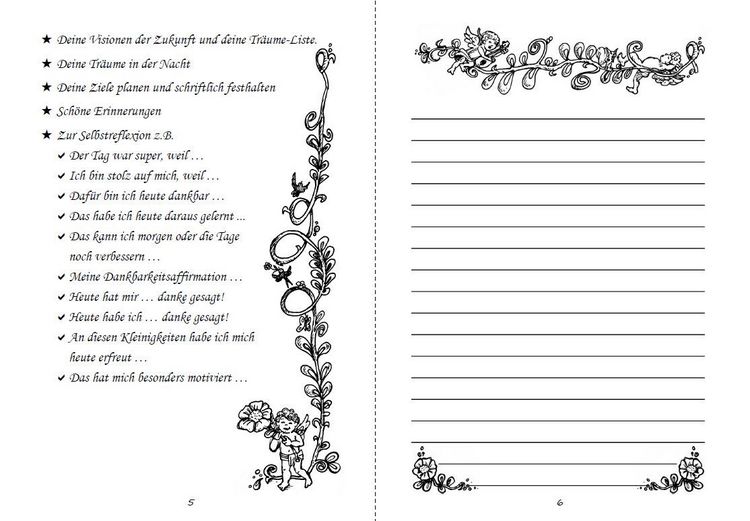 ★ Deine Visionen der Zukunft und deine Träume-Liste.
★ Deine Träume in der Nacht
★ Deine Ziele planen und schriftlich festhalten
★ Schöne Erinnerungen
★ Zur Selbstreflexion z.B.
✓ Der Tag war super, weil …
✓ Ich bin stolz auf mich, weil …
✓ Dafür bin ich heute dankbar …
✓ Das habe ich heute daraus gelernt ...
✓ Das kann ich morgen oder die Tage
noch verbessern …
✓ Meine Dankbarkeitsaffirmation …
✓ Heute hat mir … danke gesagt!
✓ Heute habe ich … danke gesagt!
✓ An diesen Kleinigkeiten habe ich mich
heute erfreut …
✓ Das hat mich besonders motiviert …
5
6